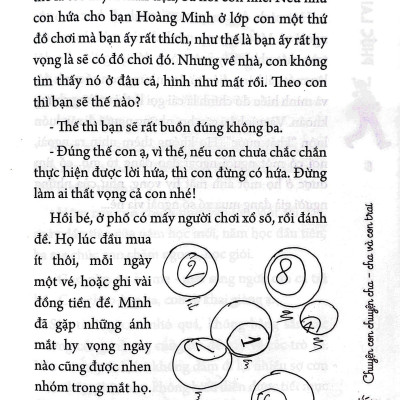 con hứa cho bạn Hoàng Minh ở lớp con một thứ
đồ chơi mà bạn ấy rất thích, như thế là bạn ấy rất hy
vọng là sẽ có đồ chơi đó. Nhưng về nhà, con không
tìm thấy nó ở đâu cả, hình như mất rồi. Theo con
thì bạn sẽ thế nào?
- Thế thì bạn sẽ rất buồn đúng không ba.
- Đúng thế con ạ, vì thế, nếu con chưa chắc chắn
thực hiện được lời hứa, thì con đừng có hứa. Đừng
làm ai thất vọng cả con nhé!
Hồi bé, ở phố có mấy người chơi xổ số, rồi đánh
đề. Họ lúc đầu mua
ít thôi, mỗi ngày
một vé, hoặc ghi vài
đồng tiền đề. Mình
đã gặp những ánh
mắt hy vọng ngày
nào cũng được nhen
nhóm trong mắt họ.
2
8
7
1
Chuyện con chuyện cha - cha và con trai